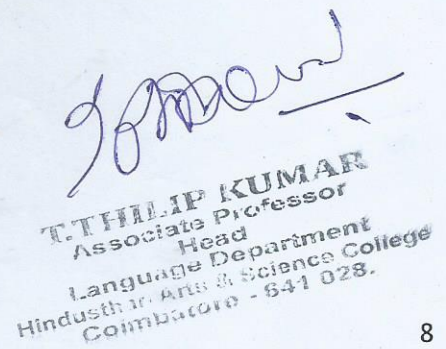 T.THILIP KUMAR
Associate Professor
Head
Language Department
Hindusthan Arts & Science College
Coimbatore - 641 028.
8